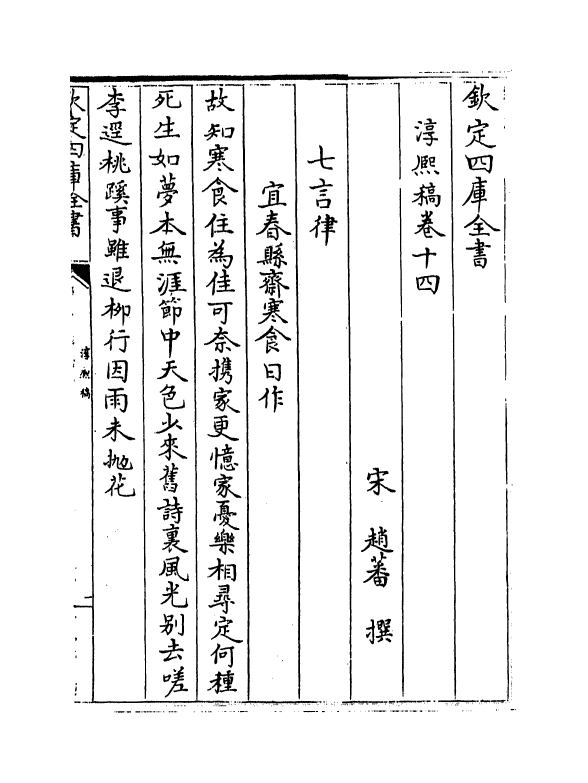 欽定四庫全書
淳熈稿卷十四
宋 趙蕃 撰
七言律
宜春縣齋寒食日作
故知寒食住為佳可奈携家更憶家憂樂相尋定何種
死生如夢本無涯節中天色少來舊詩裏風光别去嗟
李逕桃蹊事雖退栁行因雨未抛花
欽定四庫全書
淳熈稿
一